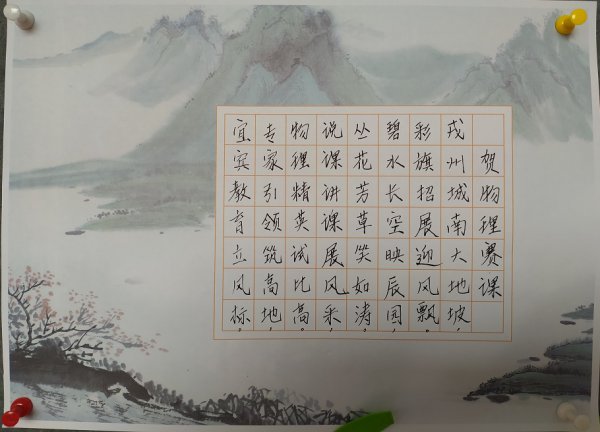 贺物理赛课
戎州城南大地坡，
彩旗招展迎风飘。
碧水长空映辰园，
丛花芳草笑如涛。
说课讲课展风采，
物理精英试比高。
专家引领筑高地，
宜宾教育立风标。